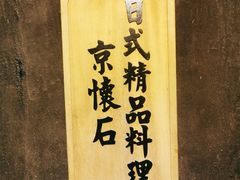 日式精品料理
京懷石